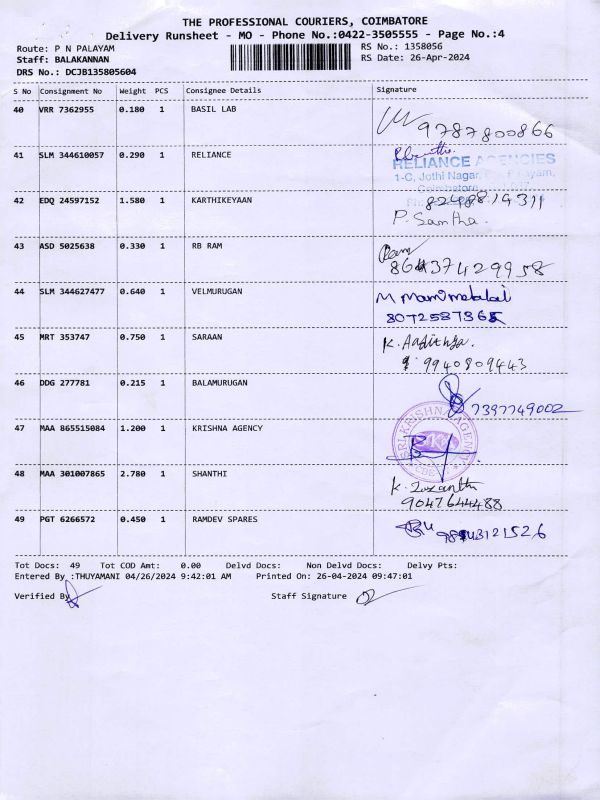 THE PROFESSIONAL COURIERS, COIMBATORE
Delivery Runsheet - MO - Phone No.:0422-3505555 - Page No.:4
Route: P N PALAYAM
RS No.: 1358056
Staff: BALAKANNAN
RS Date: 26-Apr-2024
DRS No.: DCJB135805604
S No Consignment No Weight PCS Consignee Details Signature
40 VRR 7362955 0.180 1 BASIL LAB
9787800866
41 SLM 344610057 0.290 1 RELIANCE
RELIANCE AGENCIES
1-C, Jothi Nagar,
42 EDQ 24597152 1.580 1 KARTHIKEYAAN
P. Santha.
43 ASD 5025638 0.330 1 RB RAM
44 SLM 344627477 0.640 1 VELMURUGAN
45 MRT 353747 0.750 1 SARAAN
K. Aadithya.
9940809443
46 DDG 277781 0.215 1 BALAMURUGAN
7397749002
47 MAA 865515084 1.200 1 KRISHNA AGENCY
SRI KRISHNA AGENCY
48 MAA 301007865 2.780 1 SHANTHI
9047644488
49 PGT 6266572 0.450 1 RAMDEV SPARES
Tot Docs: 49 Tot COD Amt: 0.00 Delvd Docs: Non Delvd Docs: Delvy Pts:
Entered By :THUYAMANI 04/26/2024 9:42:01 AM Printed On: 26-04-2024 09:47:01
Verified By
Staff Signature